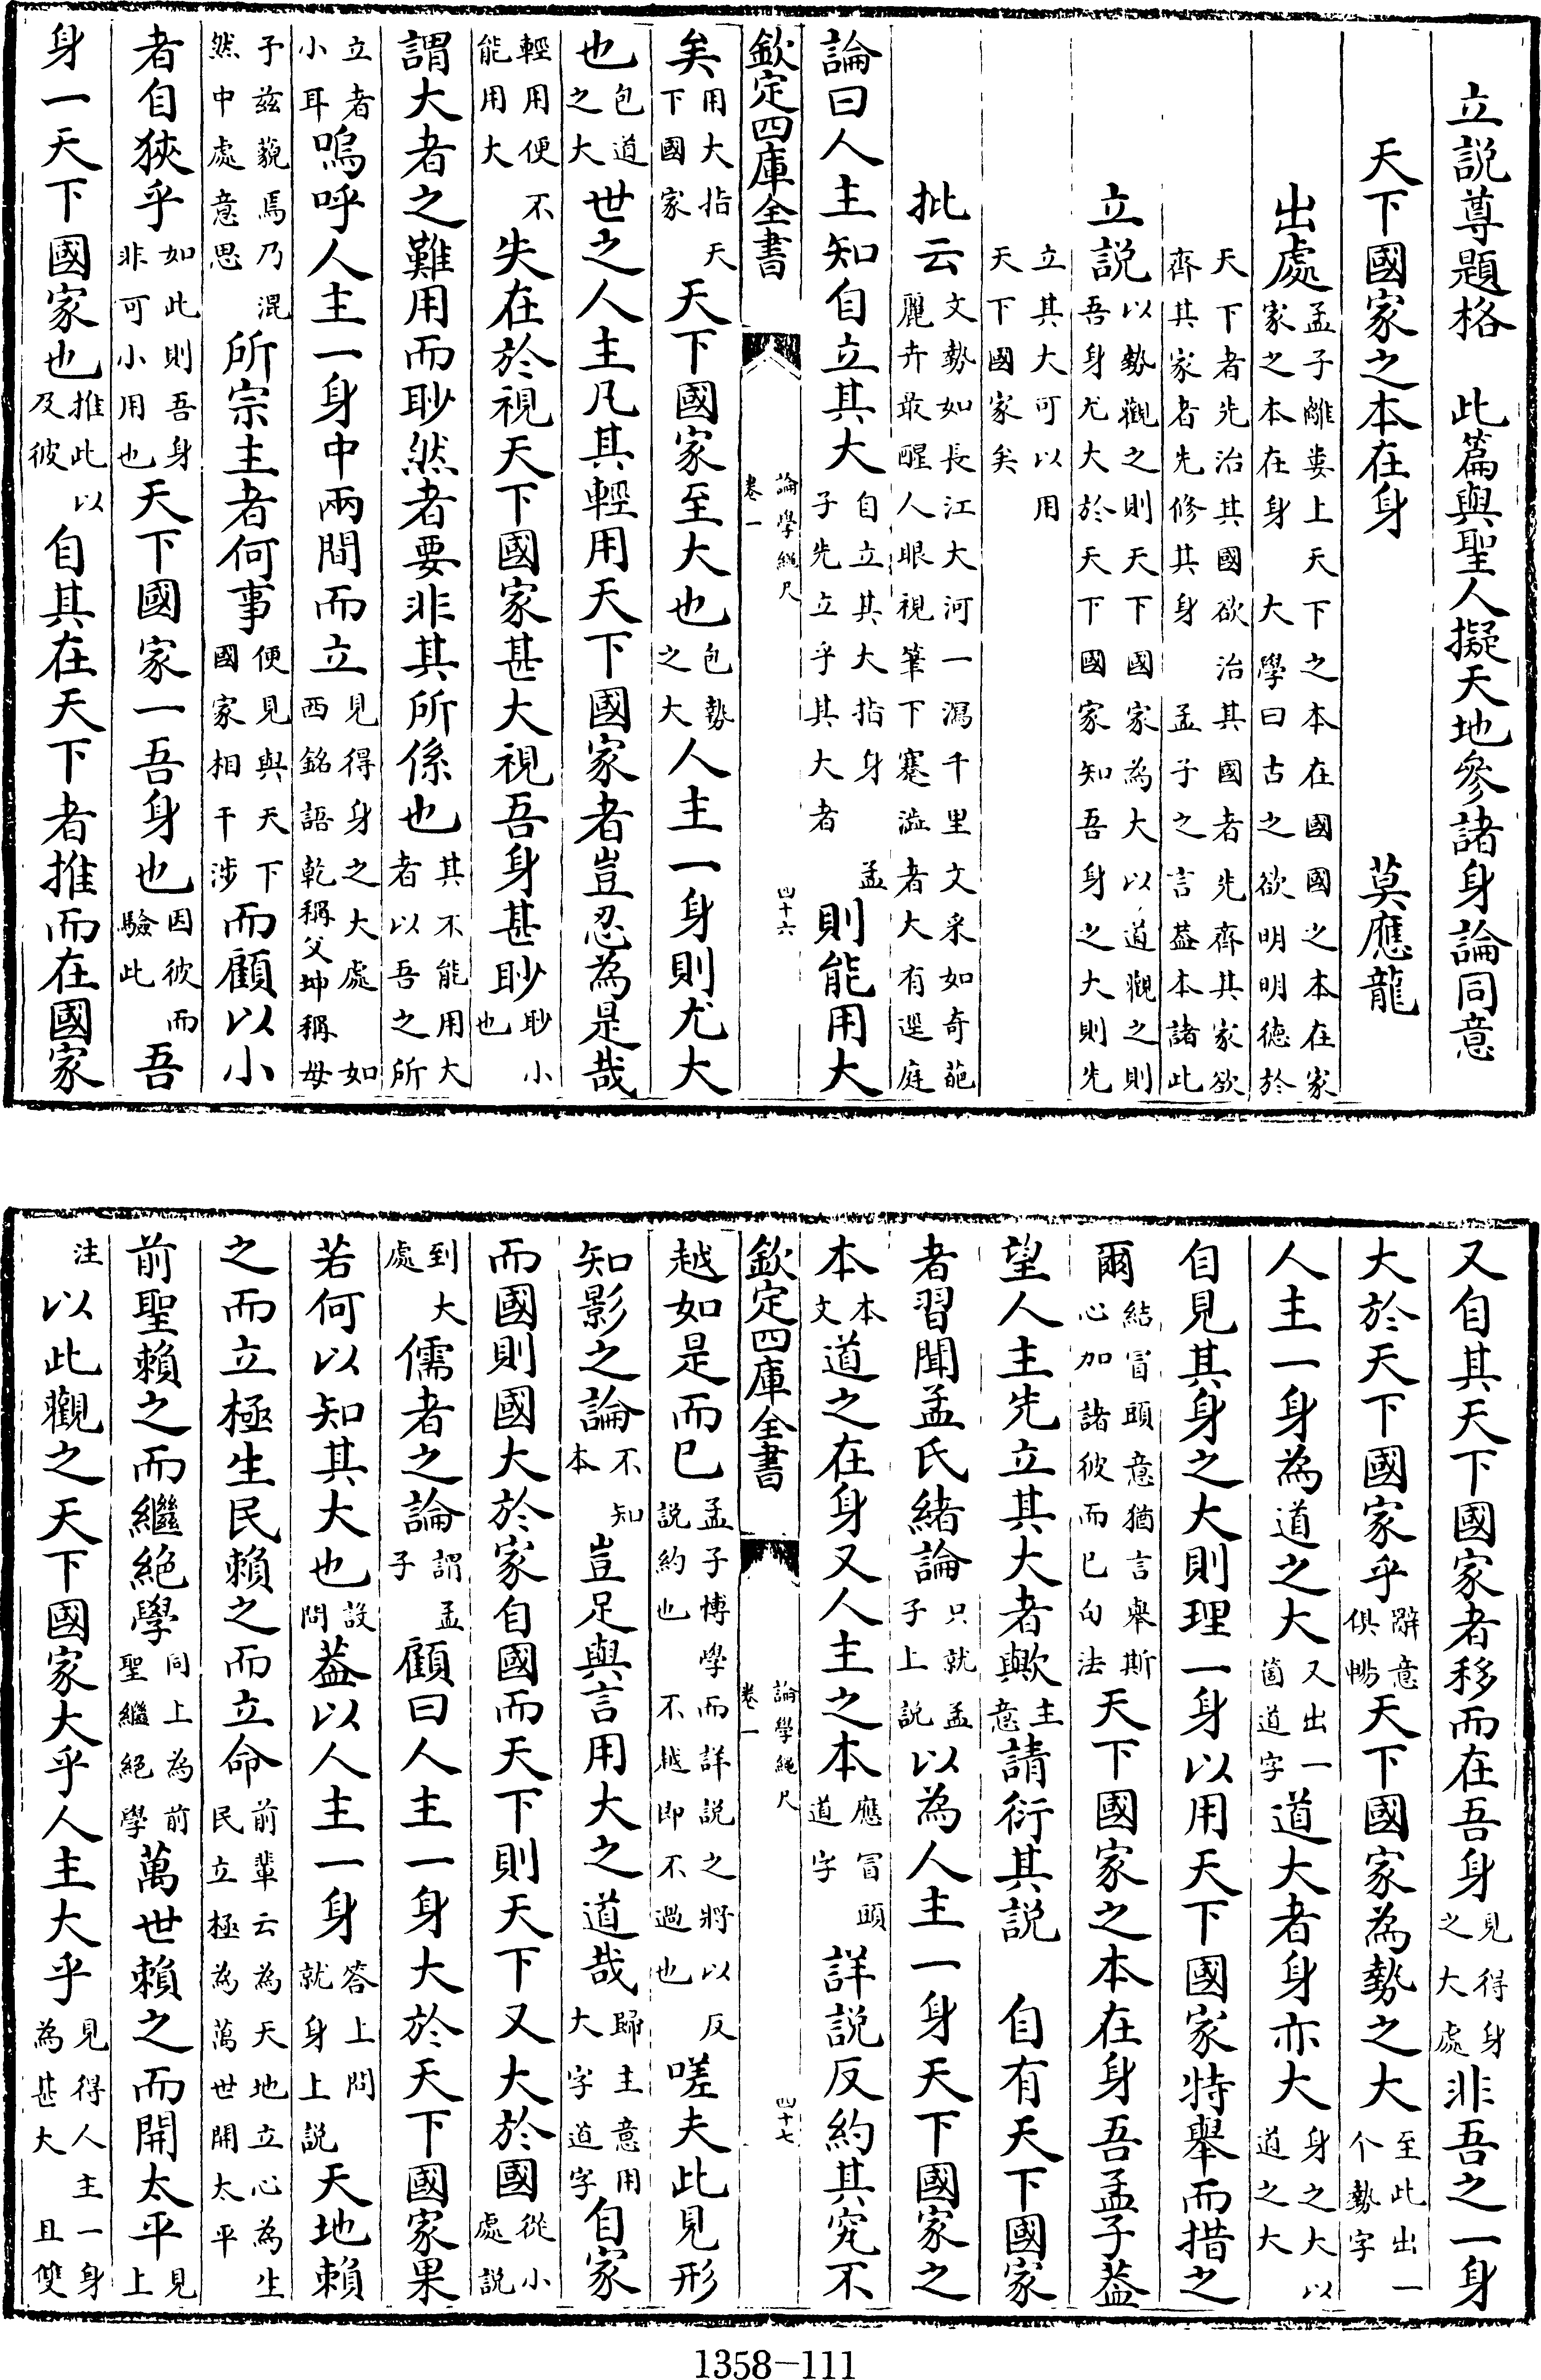 立説尊題格　此篇與聖人擬天地參諸身論同意
天下國家之本在身　莫應龍
出處孟子離婁上天下之本在國國之本在家家之本在身　大學曰古之欲明明德於
天下者先治其國欲治其國者先齊其家欲齊其家者先修其身　孟子之言葢本諸此
立説以勢觀之則天下國家為大以道觀之則吾身尤大於天下國家知吾身之大則先
立其大可以用天下國家矣
批云文勢如長江大河一瀉千里文采如奇葩麗卉最醒人眼視筆下蹇澁者大有逕庭
論曰人主知自立其大自立其大指身　孟子先立乎其大者則能用大
欽定四庫全書　論學繩尺　卷一　四十六
矣用大指天下國家天下國家至大也包勢之大人主一身則尤大
也包道之大世之人主凡其輕用天下國家者豈忍為是哉
輕用便不能用大失在於視天下國家甚大視吾身甚眇眇小也
謂大者之難用而眇然者要非其所係也其不能用大者以吾之所
立者小耳嗚呼人主一身中兩間而立見得身之大處　如西銘語乾稱父坤稱母
予兹藐焉乃混然中處意思所宗主者何事便見與天下國家相干涉而顧以小
者自狹乎如此則吾身非可小用也天下國家一吾身也因彼而驗此吾
身一天下國家也推此以及彼自其在天下者推而在國家
又自其天下國家者移而在吾身見得身之大處非吾之一身
大於天下國家乎辭意俱暢天下國家為勢之大至此出一个勢字
人主一身為道之大又出一箇道字道大者身亦大身之大以道之大
自見其身之大則理一身以用天下國家特舉而措之
爾結冒頭意猶言舉斯心加諸彼而已句法天下國家之本在身吾孟子葢
望人主先立其大者歟主意請衍其説　自有天下國家
者習聞孟氏緒論只就孟子上説以為人主一身天下國家之
本本文道之在身又人主之本應冒頭道字詳説反約其究不
欽定四庫全書　論學繩尺　卷一　四十七
越如是而已孟子博學而詳説之將以反説約也　不越即不過也嗟夫此見形
知影之論不知本豈足與言用大之道哉歸主意用大字道字自家
而國則國大於家自國而天下則天下又大於國從小處説
到大處儒者之論謂孟子顧曰人主一身大於天下國家果
若何以知其大也設問葢以人主一身答上問就身上説天地賴
之而立極生民賴之而立命前輩云為天地立心為生民立極為萬世開太平
前聖賴之而繼絶學同上為前聖繼絶學萬世賴之而開太平見上
注以此觀之天下國家大乎人主大乎見得人主一身為甚大　且雙
1358—111